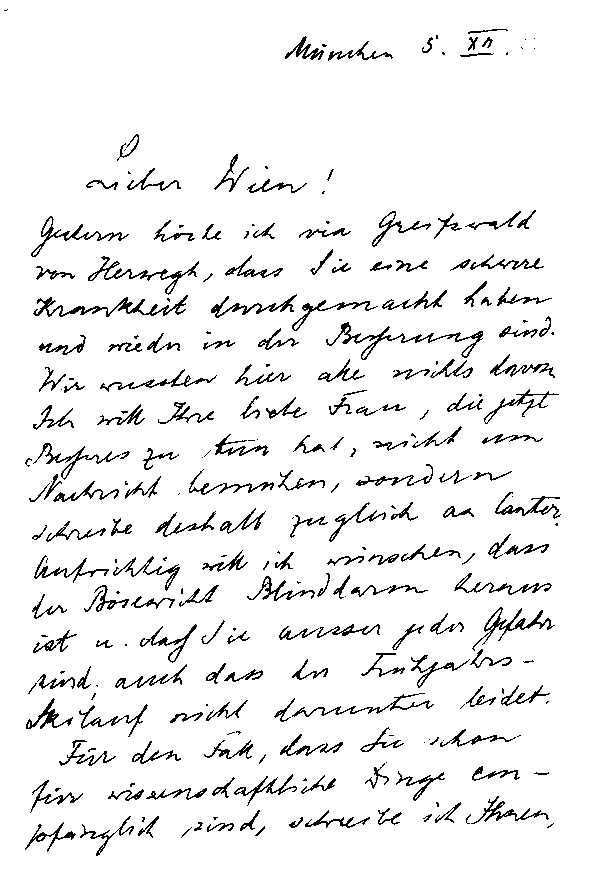 München 5. XII.
Lieber Wien!
Gestern hörte ich via Greifswald
von Herwegh, dass Sie eine schwere
Krankheit durchgemacht haben
und wieder in der Besserung sind.
Wir wussten hier alle nichts davon
Ich will Ihre liebe Frau, die jetzt
Besseres zu tun hat, nicht um
Nachricht bemühen, sondern
schreibe deshalb zugleich an Cantor.
Aufrichtig will ich wünschen, dass
der Bösewicht Blinddarm heraus
ist u. dass Sie ausser jeder Gefahr
sind; auch dass der Frühjahrs-
Skilauf nicht darunter leidet.
Für den Fall, dass Sie schon
für wissenschaftliche Dinge em-
pfänglich sind, schreibe ich Ihnen,